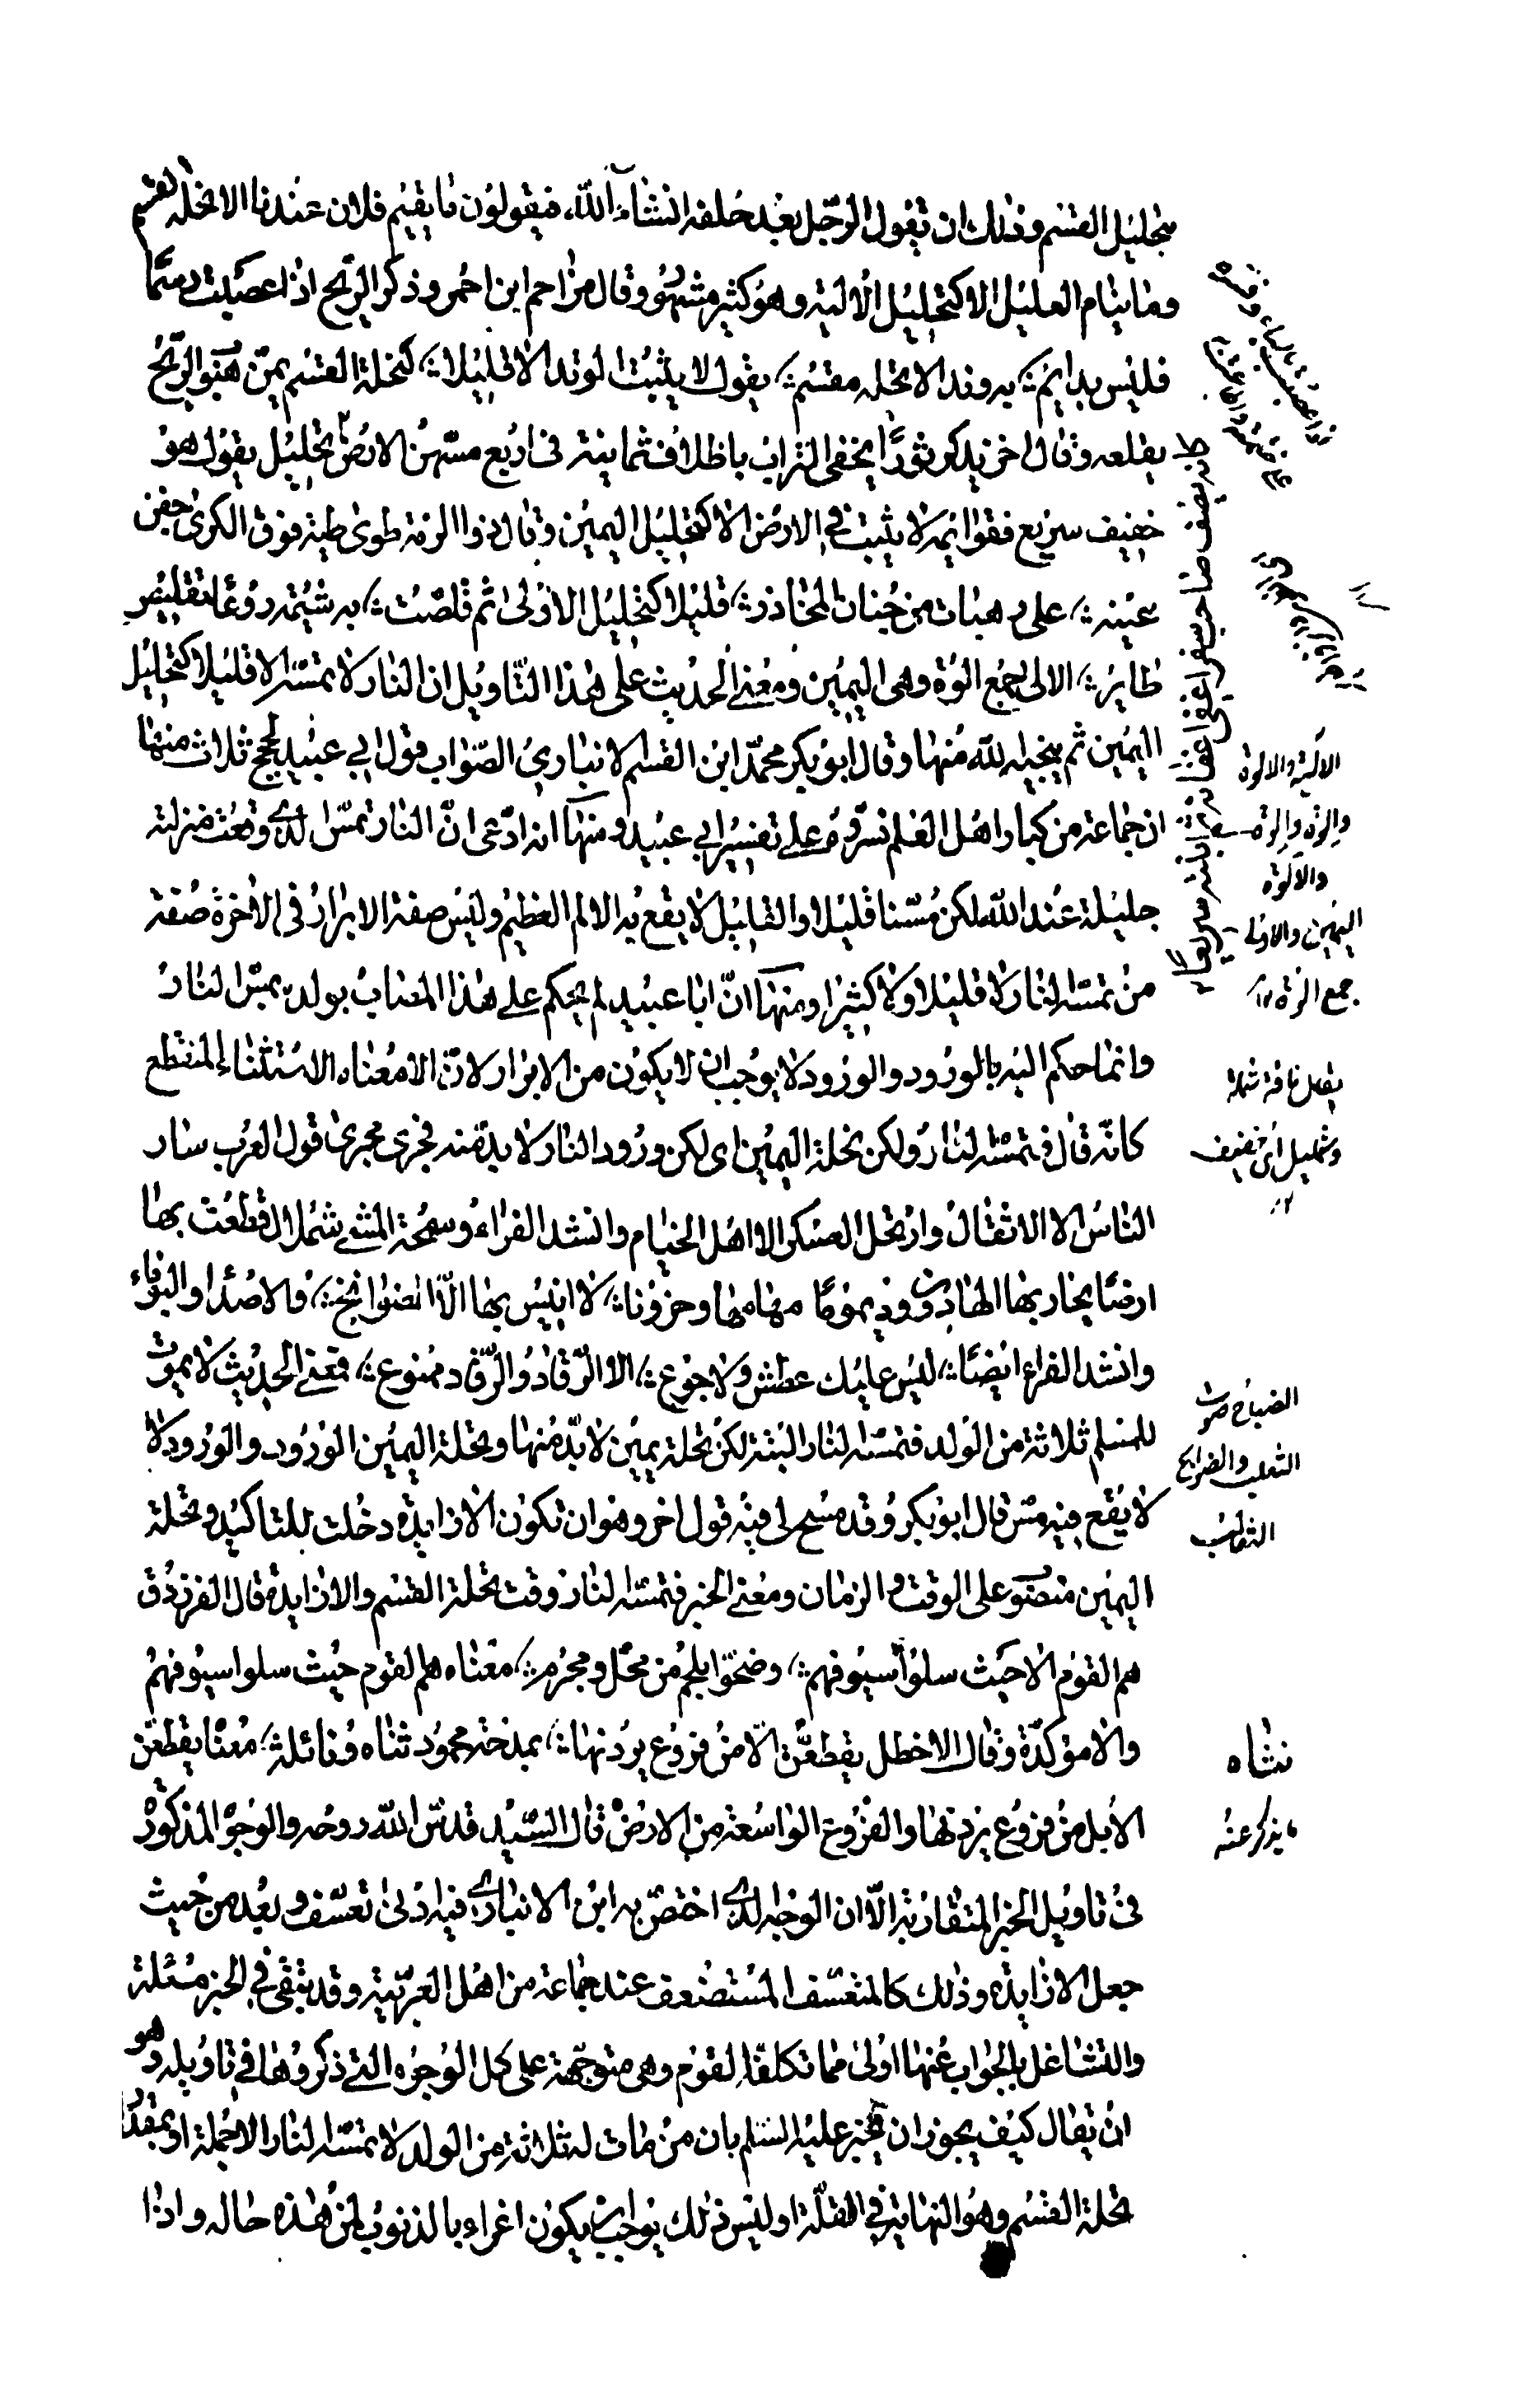 بتحليل القسم وذلك ان تقول الرجل بعد حلفه انشاء الله، فيقولون ما يقيم فلان عندنا الا تحلة القسم
وما ينام العليل الا كتحليل الالية وهو كثير مشهور وقال مزاحم ابن احمر وذكر الريح اذا عصبت رسما
فليس بدايم ؛ به وتد الا تحلة مقسم ؛ يقول لا يثبت الوتد الا قليلا ؛ كتحلة القسم يمر هبوب الريح
يقلعه وقال اخر يذكر ثورًا يخفى التراب باظلاف ثمانية في اربع مسهن الارض تحليل يقول هو
خفيف سريع فقوائمه لا يثبت في الارض الا كتحليل اليمين وقال ذوا الرمة طوى طيه فوق الكرى جفن
عينه ؛ على رهبات من جنان المحاذر ؛ قليلا كتحليل الاولى ثم قلصت ؛ به شيمة روعا تقليص
طاير ؛ الالى جمع الوة وهى اليمين ومعنى الحديث على هذا التاويل ان النار لا تمسه الا قليلا كتحليل
اليمين ثم ينجيه الله منها وقال ابو بكر محمد ابن القسم الانباري الصواب قول ابي عبيد لحجج ثلاث منها
ان جماعة من كبار اهل العلم فسروه على تفسير ابي عبيد ومنها انه ادعى ان النار تمس الذي وقعت منزلته
جليلة عند الله لكن مسا قليلا والقليل لا يقع به الالم العظيم وليس صفة الابرار في الاخرة صفة
من تمسه النار لا قليلا ولا كثيرا ومنها ان ابا عبيد لم يحكم على هذا المصاب بولده بمس النار
وانما حكم اليه بالورود والورود لا يوجب ان لا يكون من الابرار لان الا معناه الاستثناء المنقطع
كانه قال فتمسه النار ولكن تحلة اليمين اى لكن ورود النار لا بد منه فجرى مجرى قول العرب سار
الناس الا الاثقال وارتحل العسكر الا اهل الخيام وانشد الفراء وسمحة المشي شملال قطعت بها
ارضًا يحار بها الهادون ديمومًا مهامها وحزونا ؛ لا انيس بها الا الضوابح ؛ والاصداء والبوما
وانشد الفراء ايضًا ؛ ليس عليك عطش ولا جوع ؛ الا الرقاد والرقاد ممنوع ؛ فمعنى الحديث لا يموت
للمسلم ثلاثة من الولد فتمسه النار البتة لكن تحلة يمين لا بد منها وتحلة اليمين الورود والورود لا
لا يقع فيه مس قال ابو بكر وقد سنح لى فيه قول اخر وهو ان تكون الا زايدة دخلت للتاكيد وتحلة
اليمين منصوب على الوقت والزمان ومعنى الخبر فتمسه النار وقت تحلة القسم والا زايدة قال الفرزدق
هم القوم الا حيث سلوا سيوفهم ؛ وضحوا بلحم من محل ومحرم ؛ معناه هم القوم حيث سلوا سيوفهم
والا مؤكدة وقال الاخطل يقطعن الا من فروع يردنها ؛ بمدحة محمود نثاه ونائله ؛ معنا يقطعن
الابل من فروع يردنها والفروع الواسعة من الارض قال السيد قدس الله روحه والوجوه المذكورة
في تاويل الخبر المتقاربة الا ان الوجه الذى اختص به ابن الانباري فيه ادنى تعسف وبعد من حيث
جعل الا زايدة وذلك كالمتعسف المستضعف عند جماعة من اهل العربية وقد تبقى في الخبر مسئلة
والتشاغل بالجواب عنها اولى مما تكلفه القوم وهى متوجهة على كل الوجوه التي ذكروها في تاويله وهو
ان يقال كيف يجوز ان يخبر عليه السلم بان من مات له ثلاثة من الولد لا تمسه النار الا جملة او بمقدار
تحلة القسم وهو النهاية في القلة اوليس ذلك يوجب ان يكون اغراء بالذنوب لمن هذه حاله واذا
الالية والالوة
والوة والوة
والالوة
اليمين والاولى
جمع الوة
يقال ناقة شملة
وشمليل اى خفيف
الضباح صوت
الثعلب والضوابح
الثعالب
نثاه
ما يذكر عنه